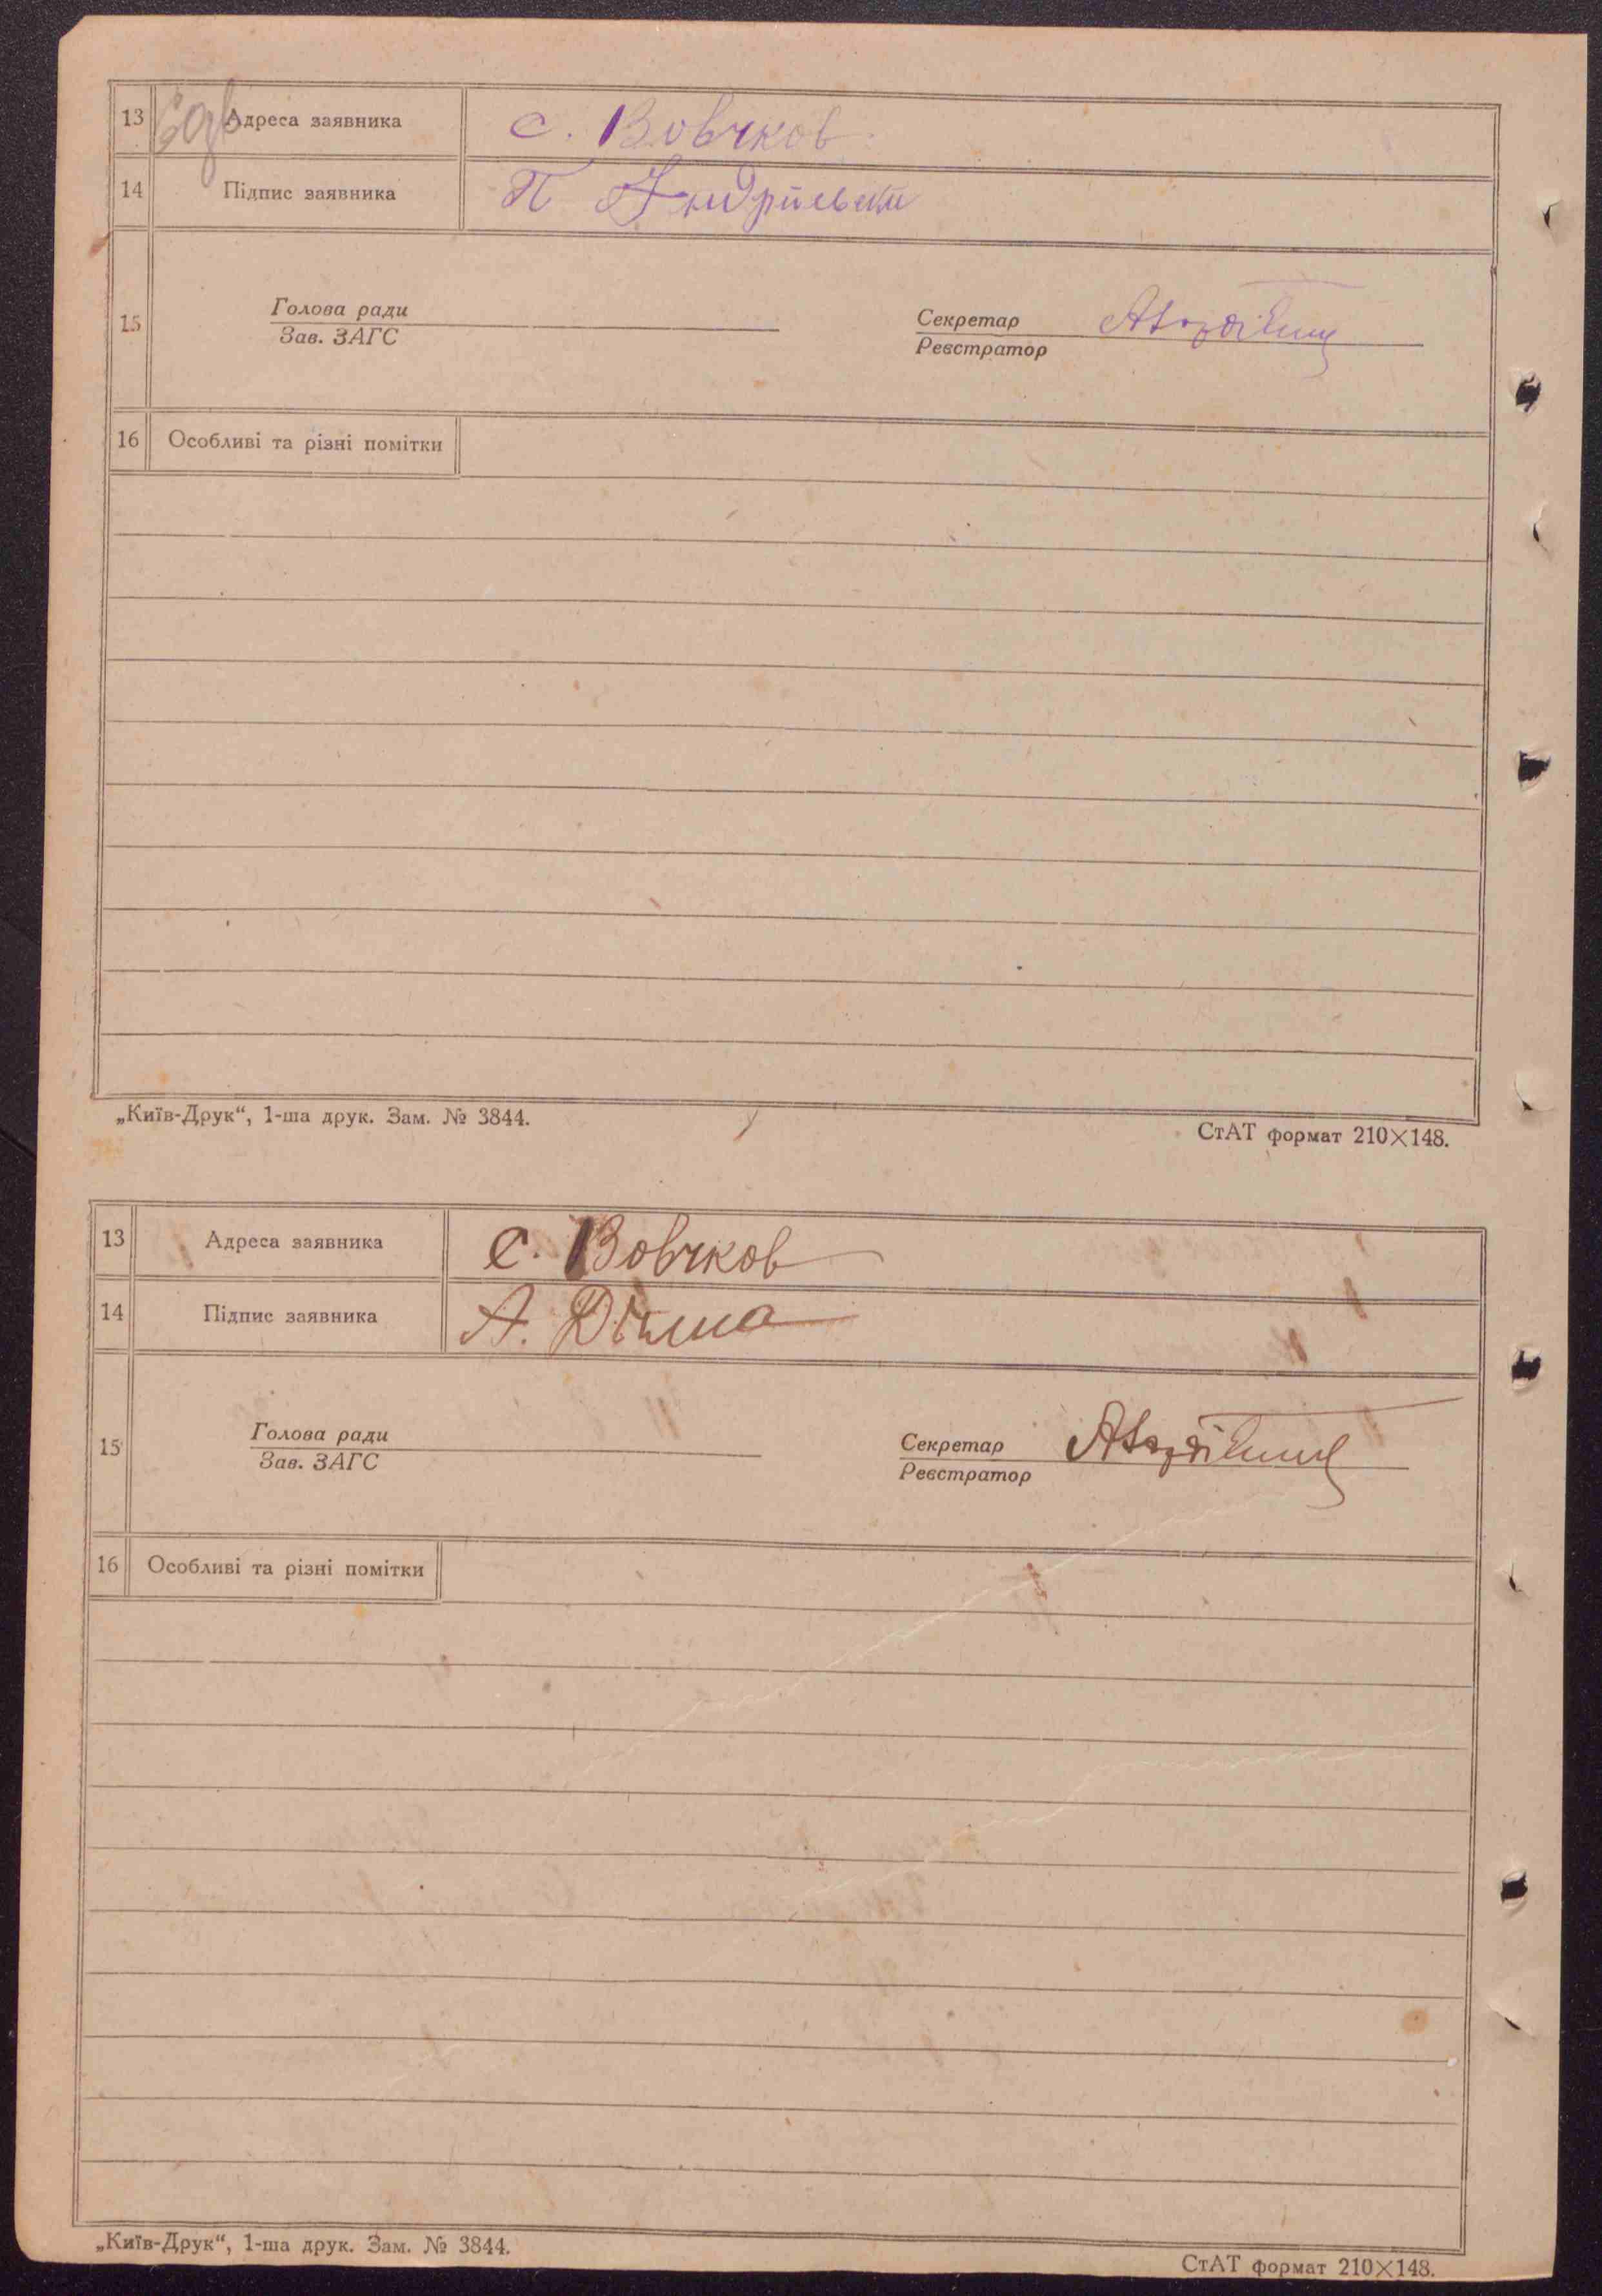 13 Адреса заявника с. Вовчков
14 Підпис заявника П
15 Голова ради Секретар
Зав. ЗАГС Реєстратор
16 Особливі та різні помітки
„Київ-Друк“, 1-ша друк. Зам. № 3844.
СтАТ формат 210×148.
13 Адреса заявника с. Вовчков
14 Підпис заявника А.
15 Голова ради Секретар
Зав. ЗАГС Реєстратор
16 Особливі та різні помітки
„Київ-Друк“, 1-ша друк. Зам. № 3844.
СтАТ формат 210×148.